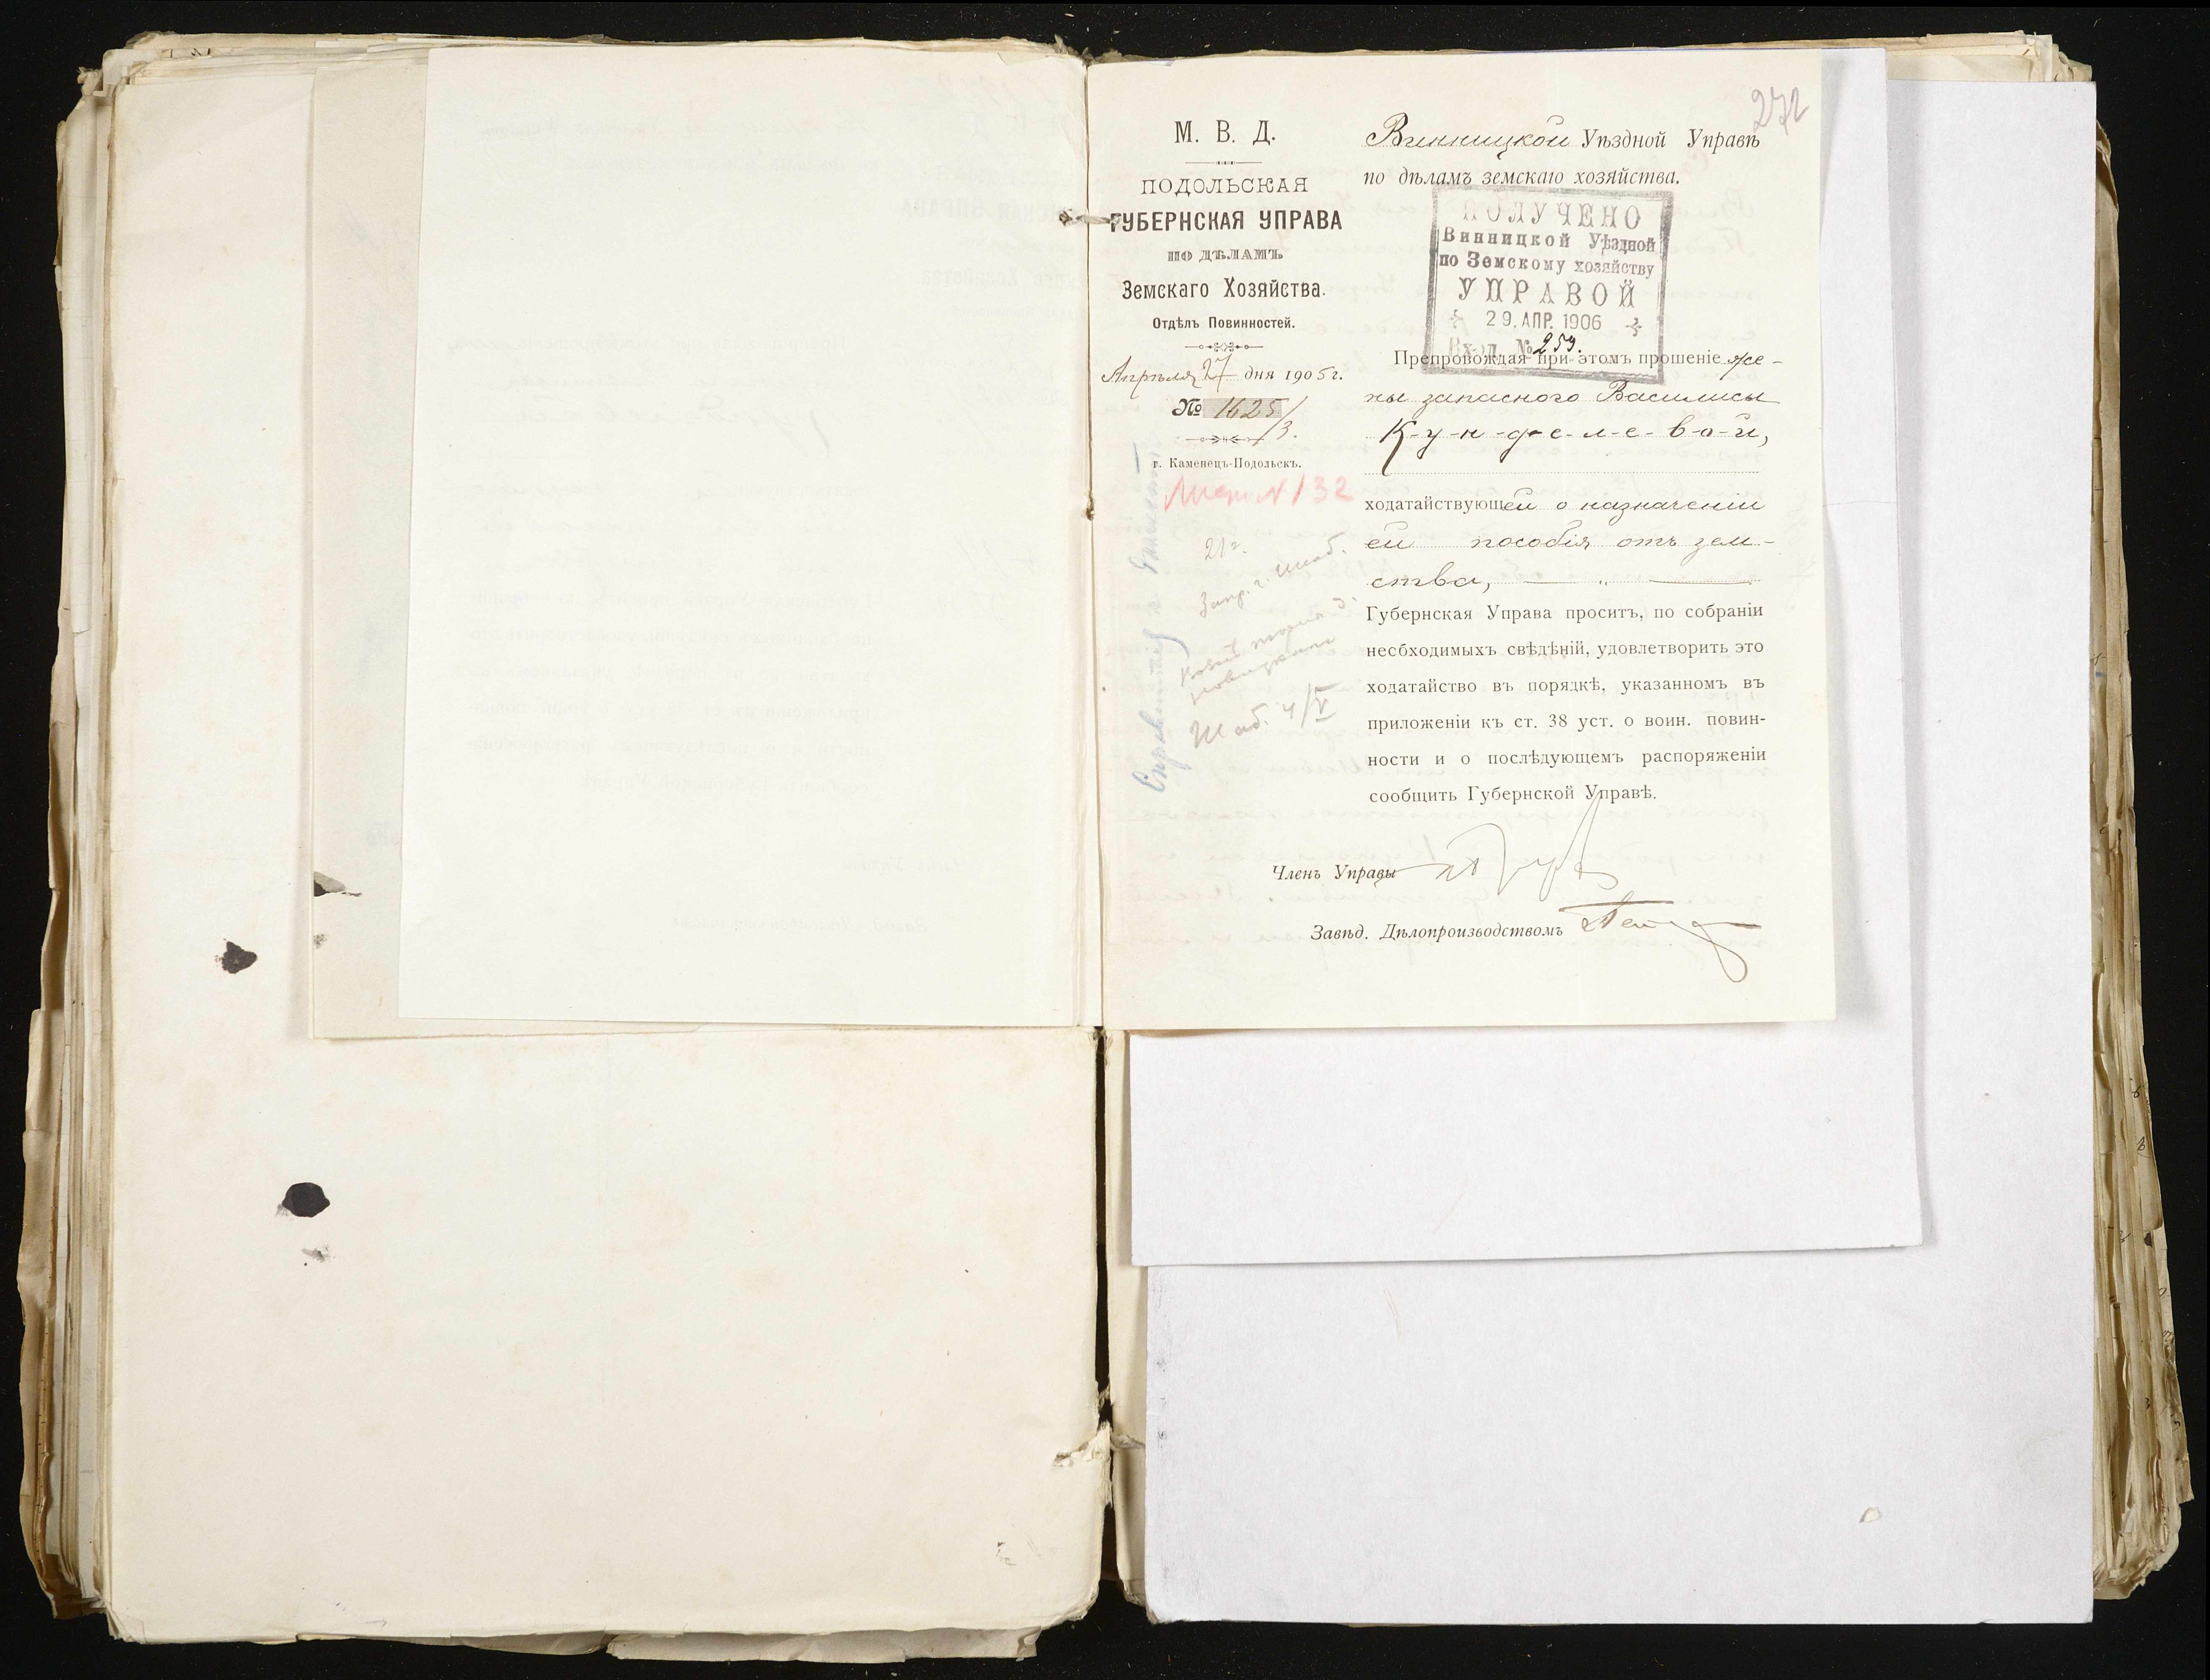 272
М. В. Д.
ПОДОЛЬСКАЯ
ГУБЕРНСКАЯ УПРАВА
ПО ДѢЛАМЪ
Земскаго Хозяйства.
Отдѣлъ Повинностей.
Апрѣля 27 дня 1905 г.
№ 1625/3.
г. Каменецъ-Подольскъ.
Лист N 132
21г.
Шаб. 4/V
Винницкой Уѣздной Управѣ
по дѣламъ земскаго хозяйства.
ПОЛУЧЕНО
Винницкой Уѣздной
по Земскому хозяйству
УПРАВОЙ
29. АПР. 1906
Вход. № 259.
Препровождая при этомъ прошеніе же-
ны запаснаго Василисы
К-у-н-д-е-л-е-в-о-й,
ходатайствующей о назначеніи
ей пособія отъ зем-
ства, — „ —
Губернская Управа проситъ, по собраніи
несбходимыхъ свѣдѣній, удовлетворить это
ходатайство въ порядкѣ, указанномъ въ
приложеніи къ ст. 38 уст. о воин. повин-
ности и о послѣдующемъ распоряженіи
сообщить Губернской Управѣ.
Членъ Управы
Завѣд. Дѣлопроизводствомъ